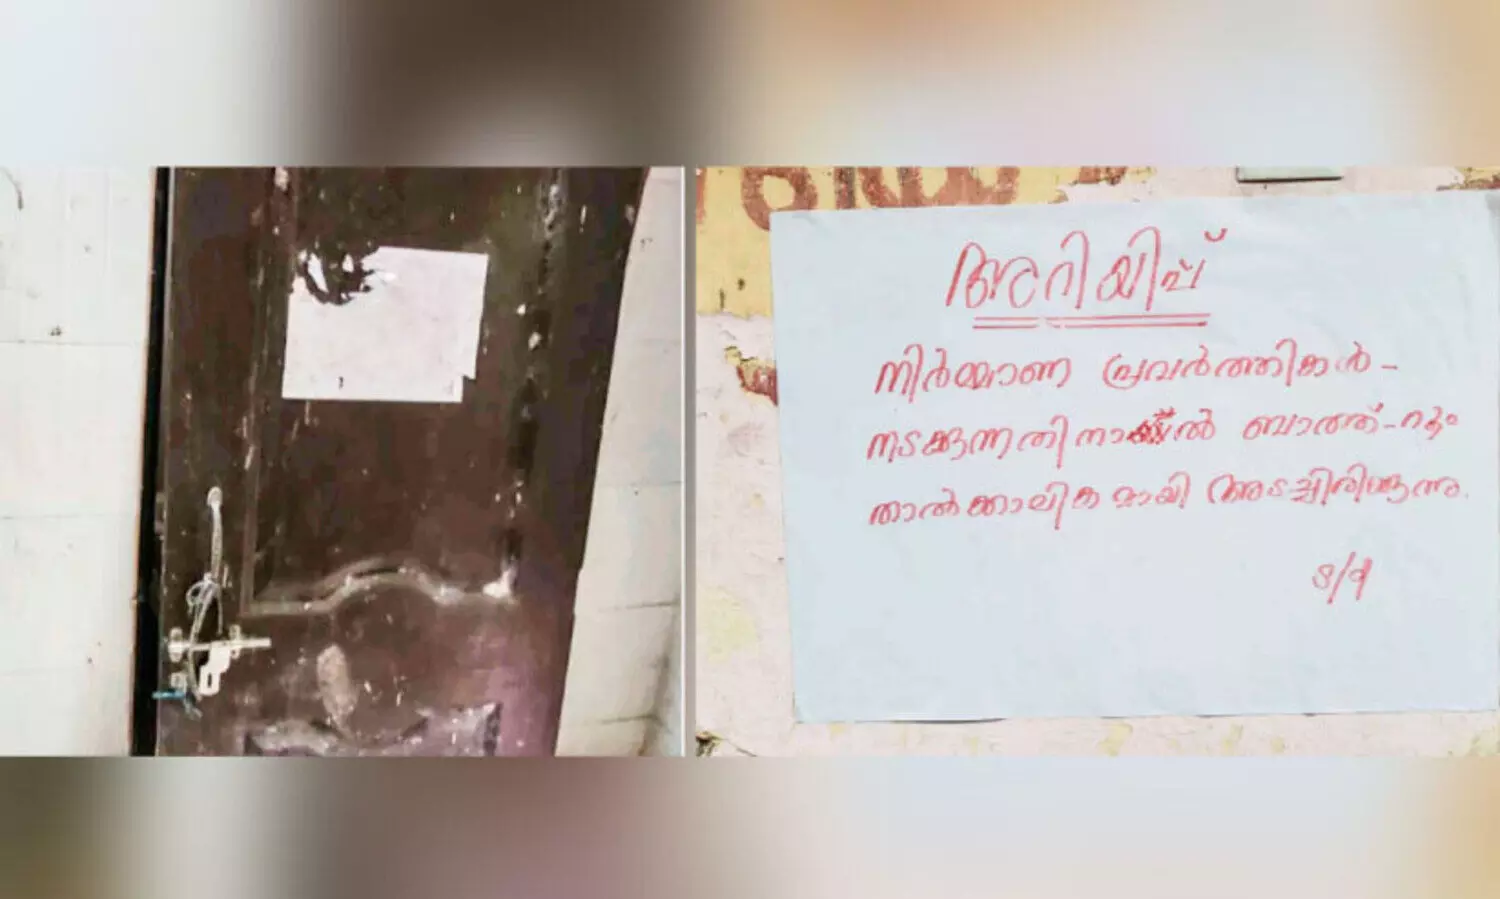 അറിയിപ്പ്
നിർമ്മാണ പ്രവർത്തികൾ-
നടക്കുന്നതിനാൽ ബാത്ത്-റൂം
താൽക്കാലികമായി അടച്ചിരിക്കുന്നു.
s/d